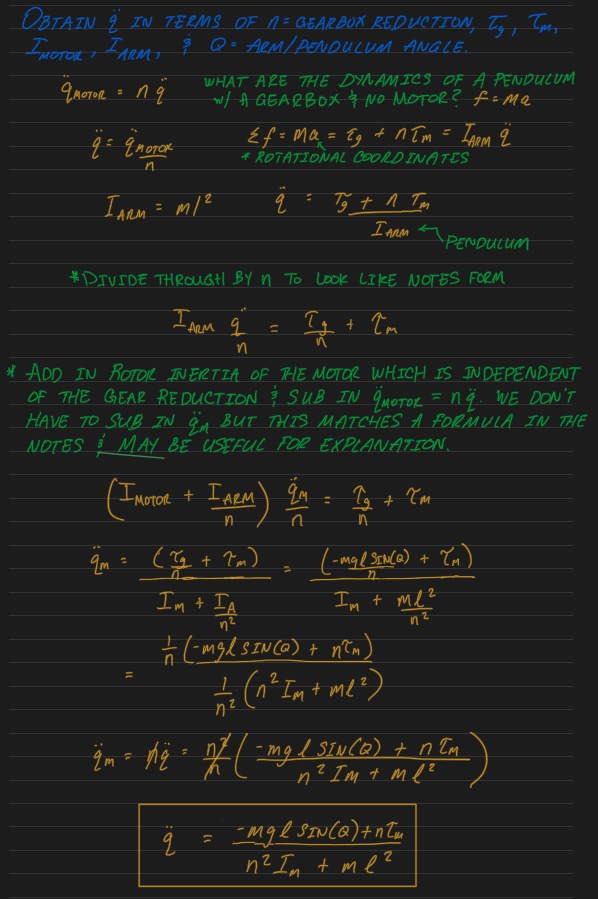 OBTAIN q̈ IN TERMS OF n = GEARBOX REDUCTION, τg, τm,
IMOTOR, IARM, & Q = ARM/PENDULUM ANGLE.
q̈MOTOR = n q̈
WHAT ARE THE DYNAMICS OF A PENDULUM
W/ A GEARBOX & NO MOTOR? f = ma
q̈ = q̈MOTOR / n
Σf = ma = τg + nτm = IARM q̈
* ROTATIONAL COORDINATES
IARM = ml²
q̈ = (τg + n τm) / IARM
PENDULUM
*DIVIDE THROUGH BY n TO LOOK LIKE NOTES FORM
IARM q̈/n = τg/n + τm
* ADD IN ROTOR INERTIA OF THE MOTOR WHICH IS INDEPENDENT
OF THE GEAR REDUCTION & SUB IN q̈MOTOR = n q̈. WE DON'T
HAVE TO SUB IN q̈m BUT THIS MATCHES A FORMULA IN THE
NOTES & MAY BE USEFUL FOR EXPLANATION.
(IMOTOR + IARM/n) q̈m/n = τg/n + τm
q̈m = (τg/n + τm) / (Im + IA/n²) = (-mglSIN(Q)/n + τm) / (Im + ml²/n²)
= 1/n (-mglSIN(Q) + nτm) / 1/n² (n²Im + ml²)
q̈m = n q̈ = n²/n ((-mg l SIN(Q) + n τm) / (n² Im + ml²))
q̈ = (-mglSIN(Q)+nτm) / (n²Im + ml²)